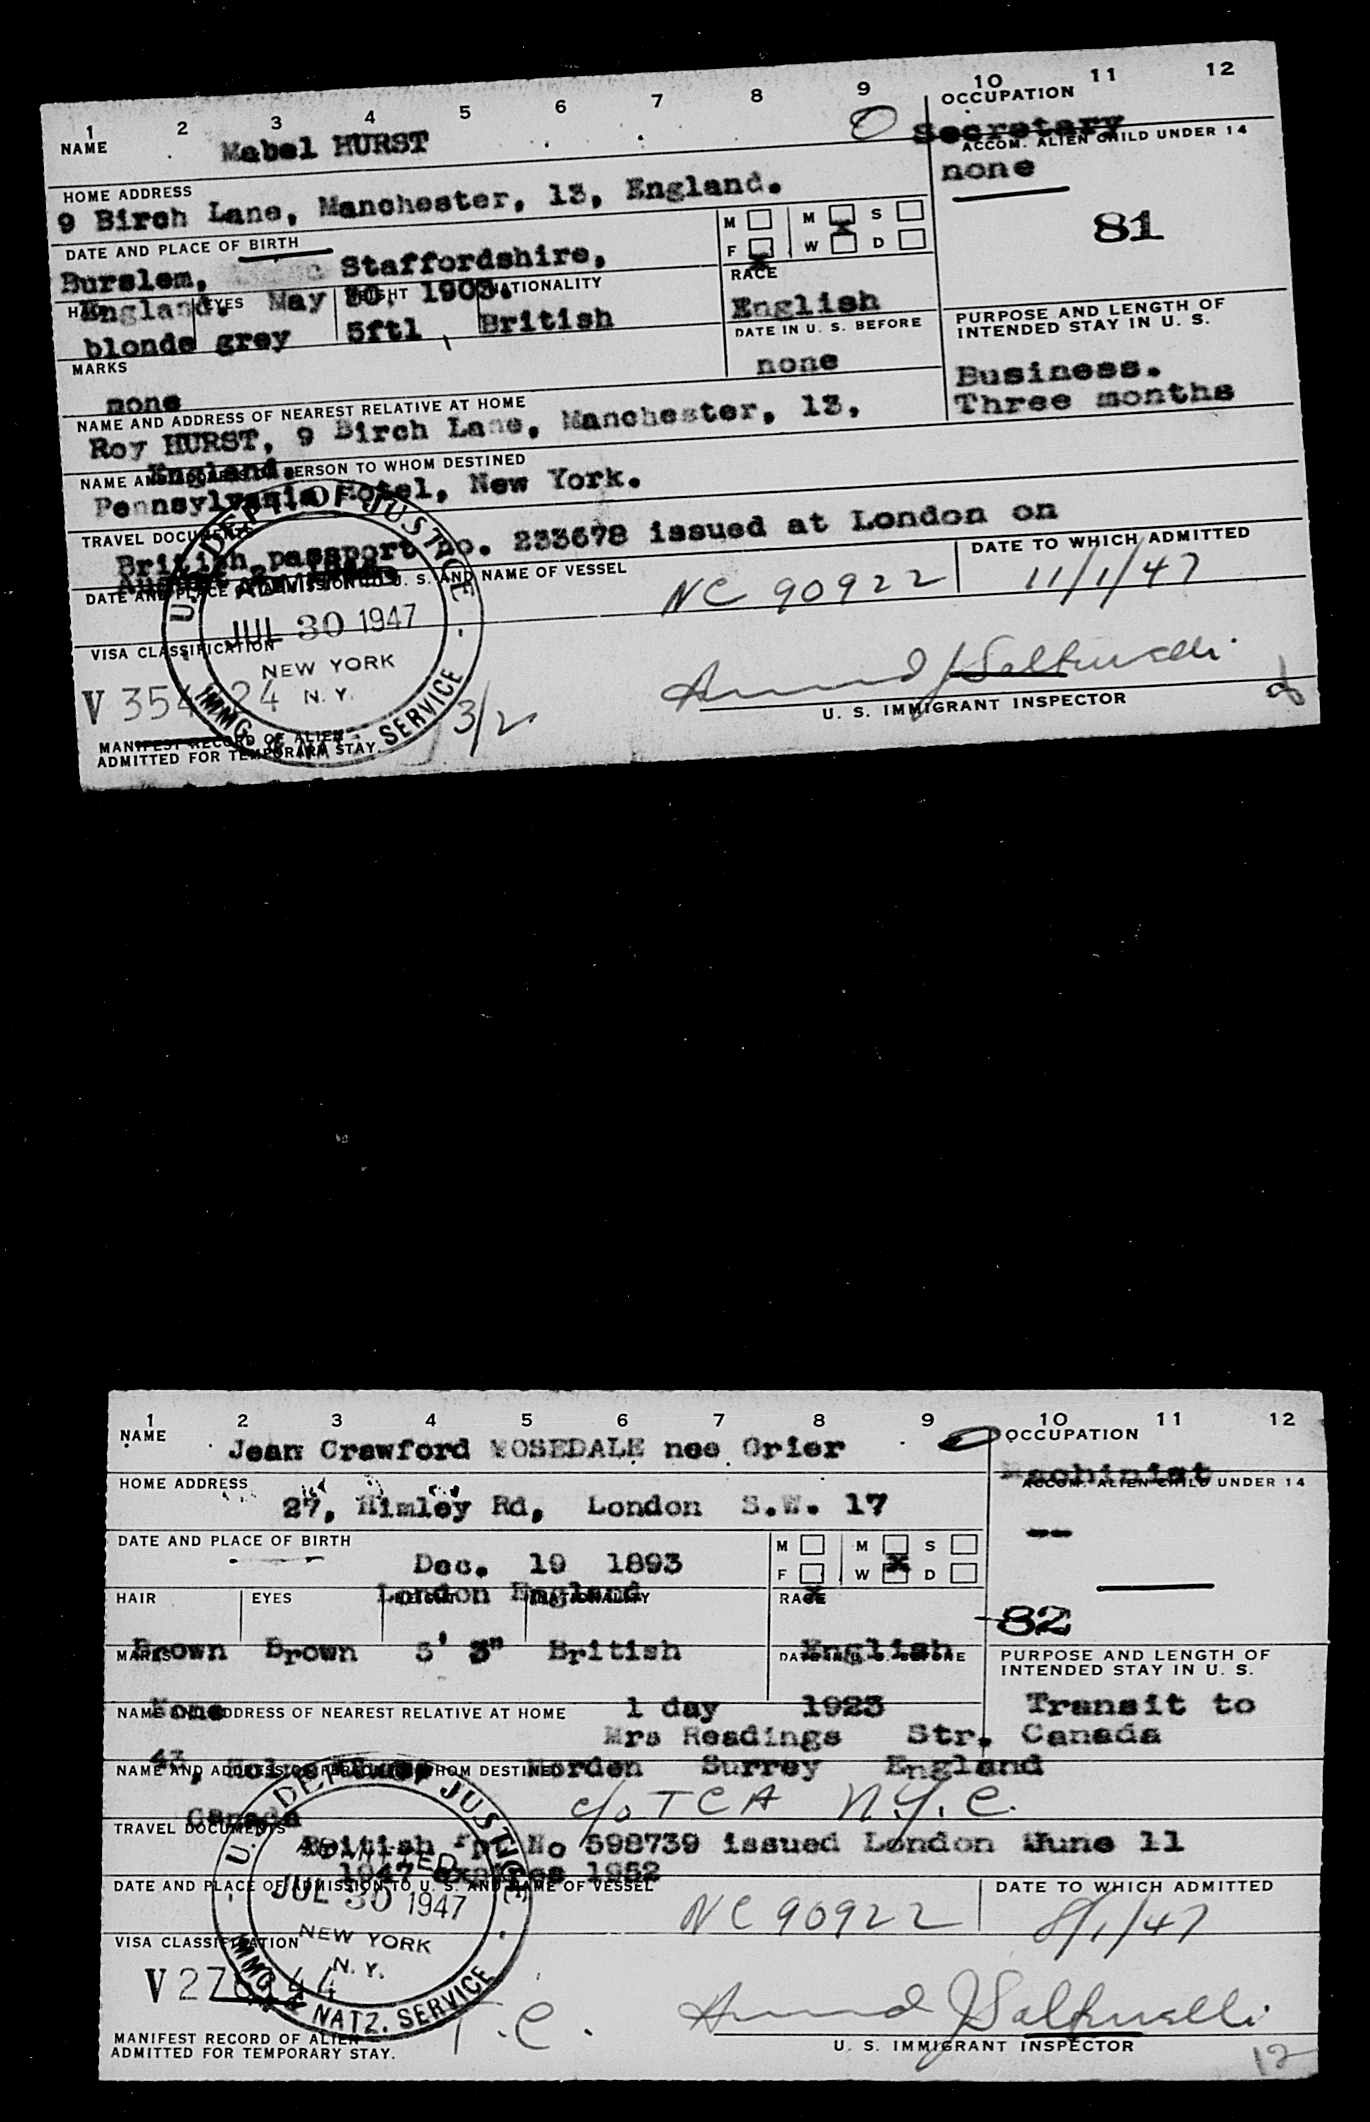 1 2 3 4 5 6 7 8 9 10 11 12
NAME Mabel HURST
OCCUPATION
Secretary
HOME ADDRESS
9 Birch Lane, Manchester, 13, England.
ACCOM. ALIEN CHILD UNDER 14
none
81
DATE AND PLACE OF BIRTH
Burslem, Staffordshire,
England. May 30, 1903.
M M S
F X W D
HAIR EYES HEIGHT NATIONALITY
blonde grey 5ft1 British
RACE
English
DATE IN U. S. BEFORE
none
PURPOSE AND LENGTH OF
INTENDED STAY IN U. S.
Business.
Three months
MARKS
none
NAME AND ADDRESS OF NEAREST RELATIVE AT HOME
Roy HURST, 9 Birch Lane, Manchester, 13,
England.
NAME AND ADDRESS OF PERSON TO WHOM DESTINED
Pennsylvania Hotel, New York.
TRAVEL DOCUMENTS
British passport no. 233678 issued at London on
August
DATE AND PLACE OF ADMISSION TO U. S. AND NAME OF VESSEL
NC 90922
DATE TO WHICH ADMITTED
11/1/47
U. S. DEPT OF JUSTICE
JUL 30 1947
NEW YORK
N. Y.
IMMG. & NATZ. SERVICE
VISA CLASSIFICATION
3/2
U. S. IMMIGRANT INSPECTOR
MANIFEST RECORD OF ALIEN
ADMITTED FOR TEMPORARY STAY.
1 2 3 4 5 6 7 8 9 10 11 12
NAME
Jean Crawford MOSEDALE nee Grier
OCCUPATION
Machinist
HOME ADDRESS
27, Himley Rd, London S.W. 17
ACCOM. ALIEN CHILD UNDER 14
--
DATE AND PLACE OF BIRTH
Dec. 19 1893
London England
M M S
F W D
HAIR EYES HEIGHT NATIONALITY
Brown Brown 5' 3" British
RACE
English
82
MARKS
None
DATE IN U. S. BEFORE
1 day 1923
PURPOSE AND LENGTH OF
INTENDED STAY IN U. S.
Transit to
Canada
NAME AND ADDRESS OF NEAREST RELATIVE AT HOME
Mrs Readings Str.
43, Morden Surrey England
NAME AND ADDRESS OF PERSON TO WHOM DESTINED
c/o TCA N.Y.C.
Canada
TRAVEL DOCUMENTS
British No 598739 issued London June 11
1947 expires 1952
DATE AND PLACE OF ADMISSION TO U. S. AND NAME OF VESSEL
NC 90922
DATE TO WHICH ADMITTED
8/1/47
U. S. DEPT OF JUSTICE
ADMITTED
JUL 30 1947
NEW YORK
N. Y.
IMMG. & NATZ. SERVICE
VISA CLASSIFICATION
T.C.
U. S. IMMIGRANT INSPECTOR
12
MANIFEST RECORD OF ALIEN
ADMITTED FOR TEMPORARY STAY.